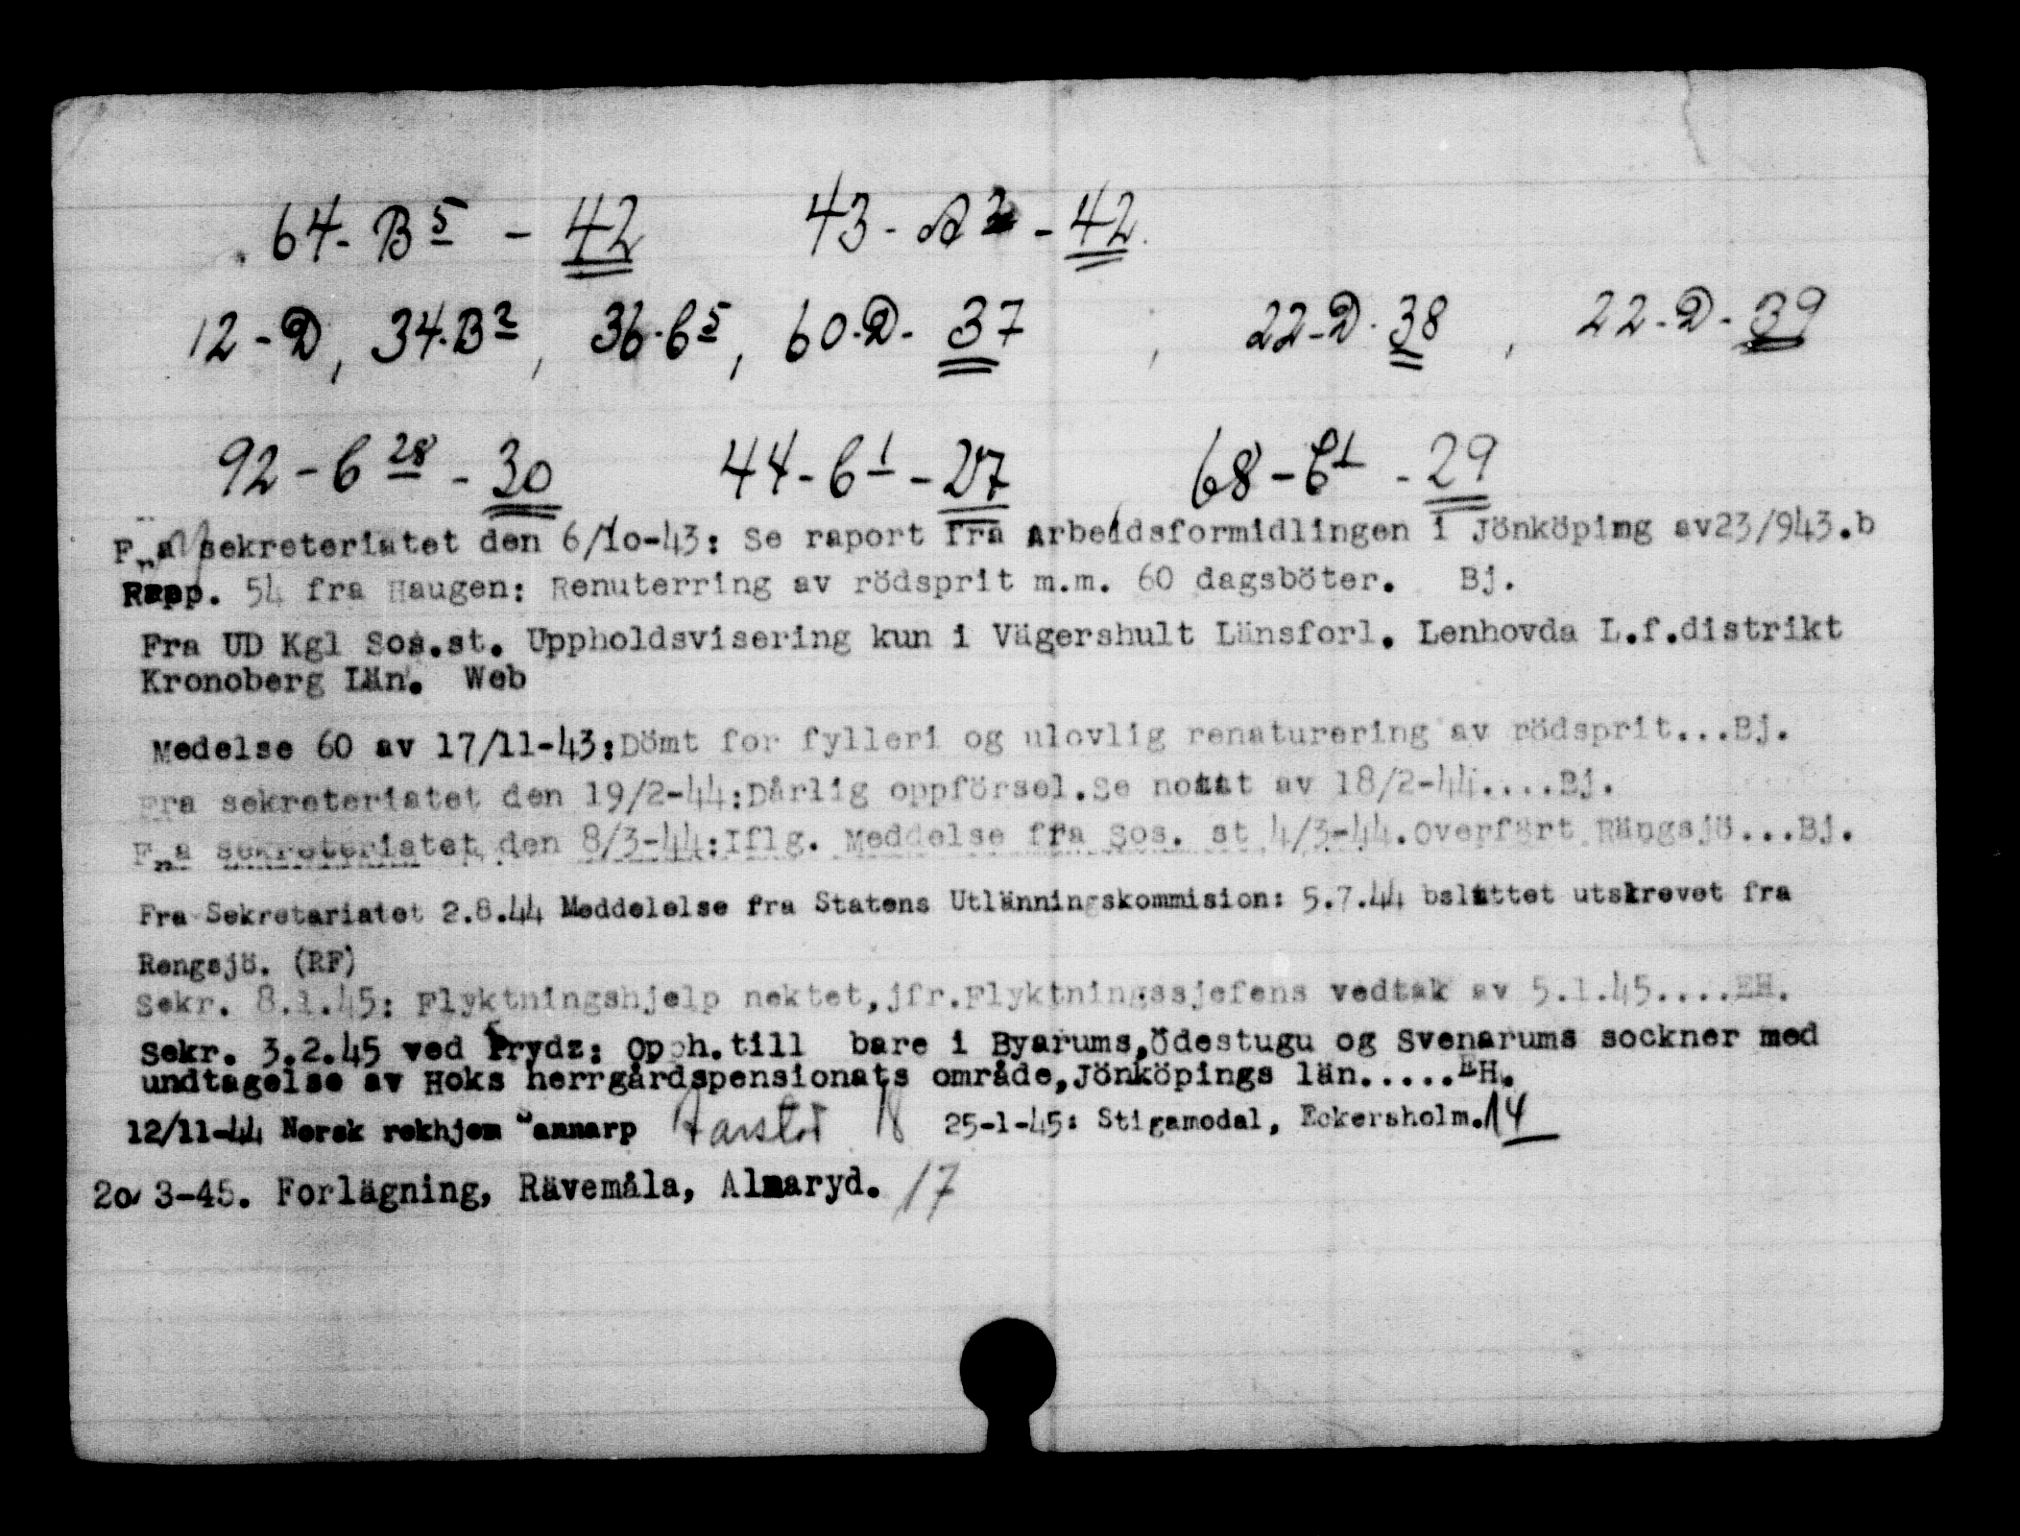 64-B5 - 42 43-A2 - 42
12-D, 34-B2, 36-C5, 60-D-37, 22-D-38, 22-D-39
92-C28-30 44-C1-27 68-C1-29
Fra sekreteriatet den 6/10-43: Se raport fra Arbeidsformidlingen i Jönköping av23/943.b
Rapp. 54 fra Haugen: Renuterring av rödsprit m.m. 60 dagsböter. Bj.
Fra UD Kgl Sos.st. Uppholdsvisering kun i Vägershult Länsforl. Lenhovda L.f.distrikt
Kronoberg Län. Web
Medelse 60 av 17/11-43:Dömt for fylleri og ulovlig renaturering av rödsprit...Bj.
Fra sekreteriatet den 19/2-44:Dårlig oppförsel.Se notat av 18/2-44....Bj.
Fra sekreteriatet den 8/3-44:Iflg. Meddelse fra Sos. st 4/3-44.Overfört Rängsjö...Bj.
Fra Sekretariatet 2.8.44 Meddelelse fra Statens Utlänningskommision: 5.7.44 beslúttet utskrevet fra
Rengsjö. (RF)
Sekr. 8.1.45: Flyktningshjelp nektet,jfr.Flyktningssjefens vedtak av 5.1.45....EH.
Sekr. 3.2.45 ved Frydz: Opph.till bare i Byarums,Ödestugu og Svenarums sockner med
undtagelse av Hoks herrgårdspensionats område,Jönköpings län.....EH.
12/11-44 Norsk rekhjem annarp 18 25-1-45: Stigamodal, Eckersholm.14
20 3-45. Forlägning, Rävemåla, Almaryd. 17